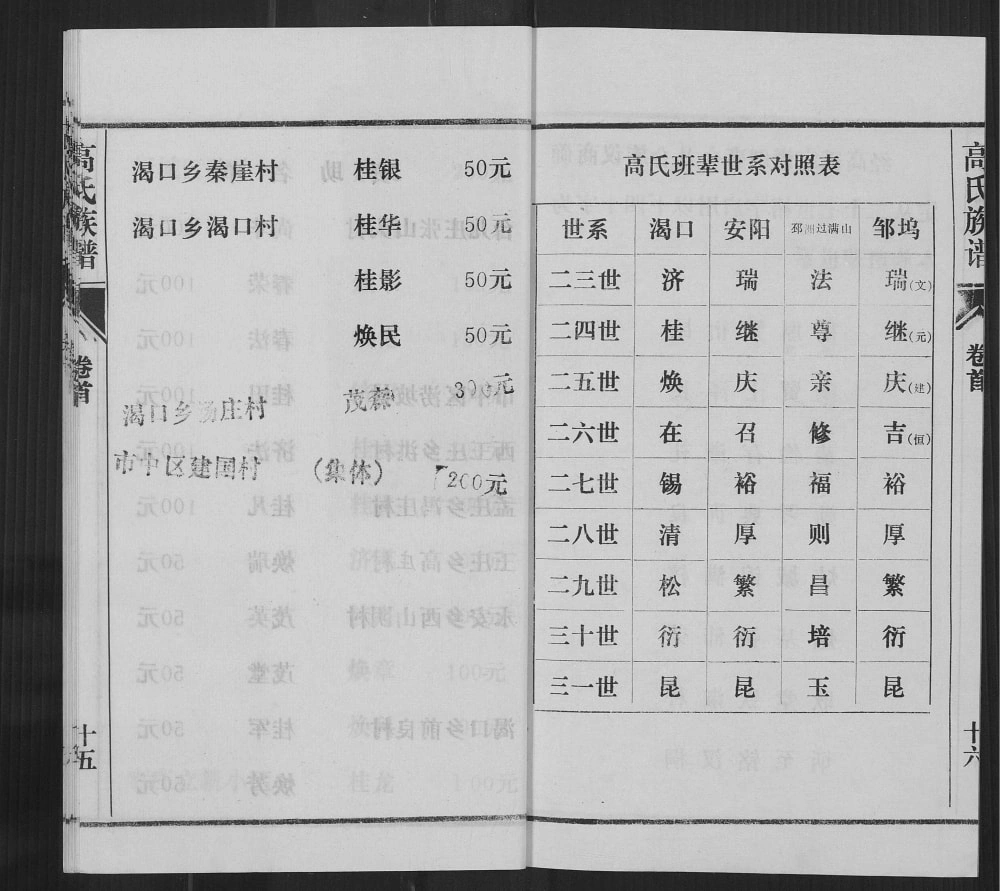 高氏族谱
卷首
十五
渴口乡秦崖村 桂银 50元
渴口乡渴口村 桂华 50元
桂影 50元
焕民 50元
渴口乡 庄村 茂森 30元
市中区建国村 (集体) 200元
高氏班辈世系对照表
世系 渴口 安阳 邳 过满山 邹坞
二三世 济 瑞 法 瑞(文)
二四世 桂 继 尊 继(元)
二五世 焕 庆 亲 庆(建)
二六世 在 召 修 吉(恒)
二七世 锡 裕 福 裕
二八世 清 厚 则 厚
二九世 松 繁 昌 繁
三十世 衍 衍 培 衍
三一世 昆 昆 玉 昆
高氏族谱
卷首
十六